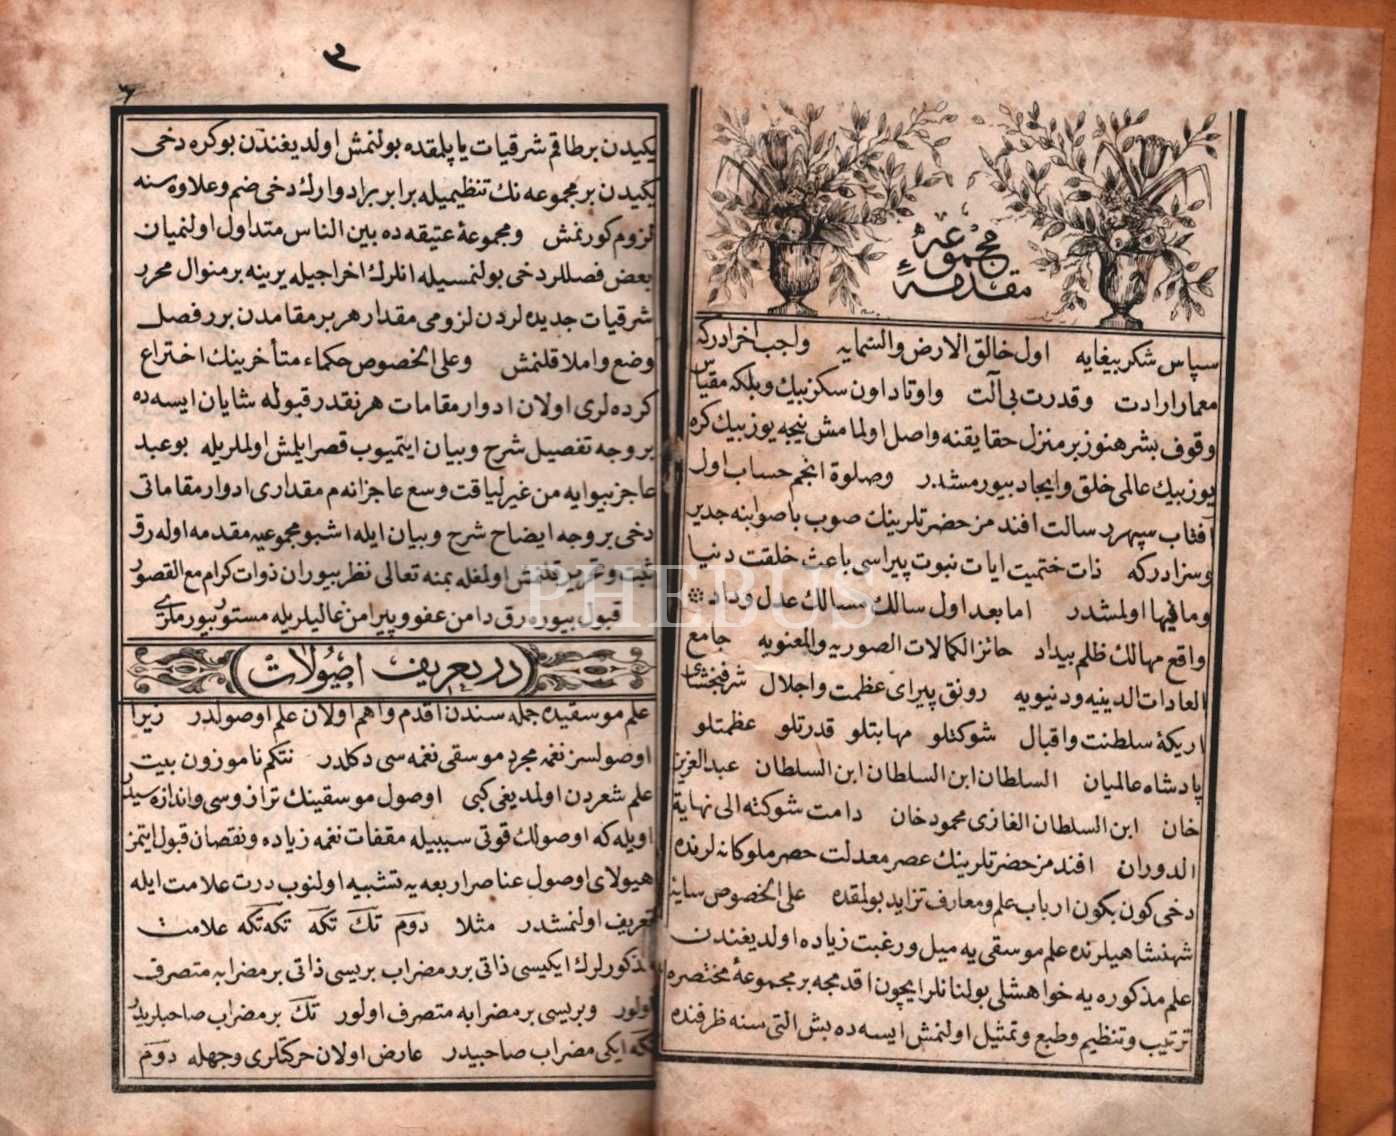 مجموعه
مقدمهٔ
سپاس شكر بيغايه اول خالق الارض والسمايه واجب احرادركه
معمار ارادت وقدرت بى آلت واوتاد اون سكز بيك وبلكه مقياس
وقوف بشر هنوز بر منزل حقايقنه واصل اولمامش نيجه يوز بيك كره
يوز بيك عالمى خلق وايجاد بيورمشدر وصلوة انجم حساب اول
آفتاب سپهر رسالت افندمز حضرتلرينك صوب باصوابنه جدير
وسزادركه ذات ختميت ايات نبوت پيراسى باعث خلقت دنيا
ومافيها اولمشدر اما بعد اول سالك مسالك عدل وداد
واقع مهالك ظلم بيداد حائز الكمالات الصوريه والمعنويه جامع
العادات الدينيه ودنيويه رونق پيراى عظمت واجلال شرفبخشاى
اريكهٔ سلطنت واقبال شوكتلو مهابتلو قدرتلو عظمتلو
پادشاه عالميان السلطان ابن السلطان ابن السلطان عبد العزيز
خان ابن السلطان الغازى محمود خان دامت شوكته الى نهاية
الدوران افندمز حضرتلرينك عصر معدلت حصر ملوكانه لرنده
دخى كون بكون ارباب علم ومعارف تزايد بولمقده على الخصوص سايهٔ
شهنشاهيلرنده علم موسقى يه ميل ورغبت زياده اولديغندن
علم مذكوره يه خواهشلى بولنانلر ايچون اقدمجه بر مجموعهٔ مختصره
ترتيب وتنظيم وطبع وتمثيل اولنمش ايسه ده بش التى سنه ظرفنده
٢
يكيدن بر طاقم شرقيات ياپلمقده بولنمش اولديغندن بو كره دخى
يكيدن بر مجموعه نك تنظيميله برابر برادوارك دخى ضم وعلاوه سنه
لزوم كورنمش ومجموعهٔ عتيقه ده بين الناس متداول اولنميان
بعض فصللر دخى بولنمسيله انلرك اخراجيله يرينه بر منوال محرر
شرقيات جديده لردن لزومى مقدار هر بر مقامدن برر فصل
وضع واملا قلنمش وعلى الخصوص حكماء متأخرينك اختراع
كرده لرى اولان ادوار مقامات هر نقدر قبوله شايان ايسه ده
بر وجه تفصيل شرح وبيان ايتميوب قصر ايلمش اولملريله بو عبد
عاجز بيوايه من غير لياقت وسع عاجزانه م مقدارى ادوار مقاماتى
دخى بر وجه ايضاح شرح وبيان ايله اشبو مجموعيه مقدمه اوله رق
اولمغله بمنه تعالى نظر بيوران ذوات كرام مع القصور
قبول بيوره رق دامن عفو وپيرامن عاليلريله مستور بيورملرى
در تعريف اصولات
علم موسقيده جمله سندن اقدم واهم اولان علم اوصولدر زيرا
اوصولسز نغمه مجرد موسقى نغمه سى دكلدر نتكم ناموزون بيت
علم شعردن اولمديغى كبى اوصول موسقينك ترازوسى واندازه سيدر
اويله كه اوصولك قوتى سببيله مقفات نغمه زياده ونقصان قبول ايتمز
هيولاى اوصول عناصر اربعه يه تشبيه اولنوب درت علامت ايله
تعريف اولنمشدر مثلا دوم تك تكه تكه تكه علامت
مذكورلرك ايكيسى ذاتى برر مضراب بريسى ذاتى بر مضرابه متصرف
اولور وبريسى بر مضرابه متصرف اولور تك بر مضراب صاحبلريدر
تكه ايكى مضراب صاحبيدر عارض اولان حركتلرى وجهله دوم
PHEBUS